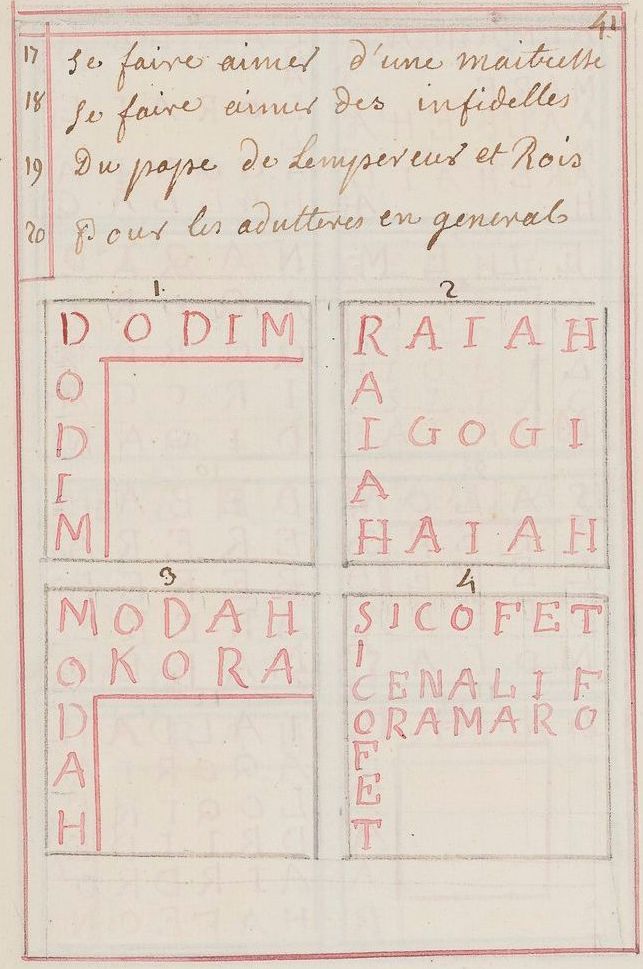 41
17 Se faire aimer d'une maitresse
18 Se faire aimer des infidelles
19 Du pape de Lempereur et Rois
20 Pour les adulteres en general
1
DODIM
O
D
I
M
2
RAIAH
A
IGOGI
A
HAIAH
3
MODAH
OKORA
D
A
H
4
SICOFET
I
CENALIF
ORAMARO
F
E
T